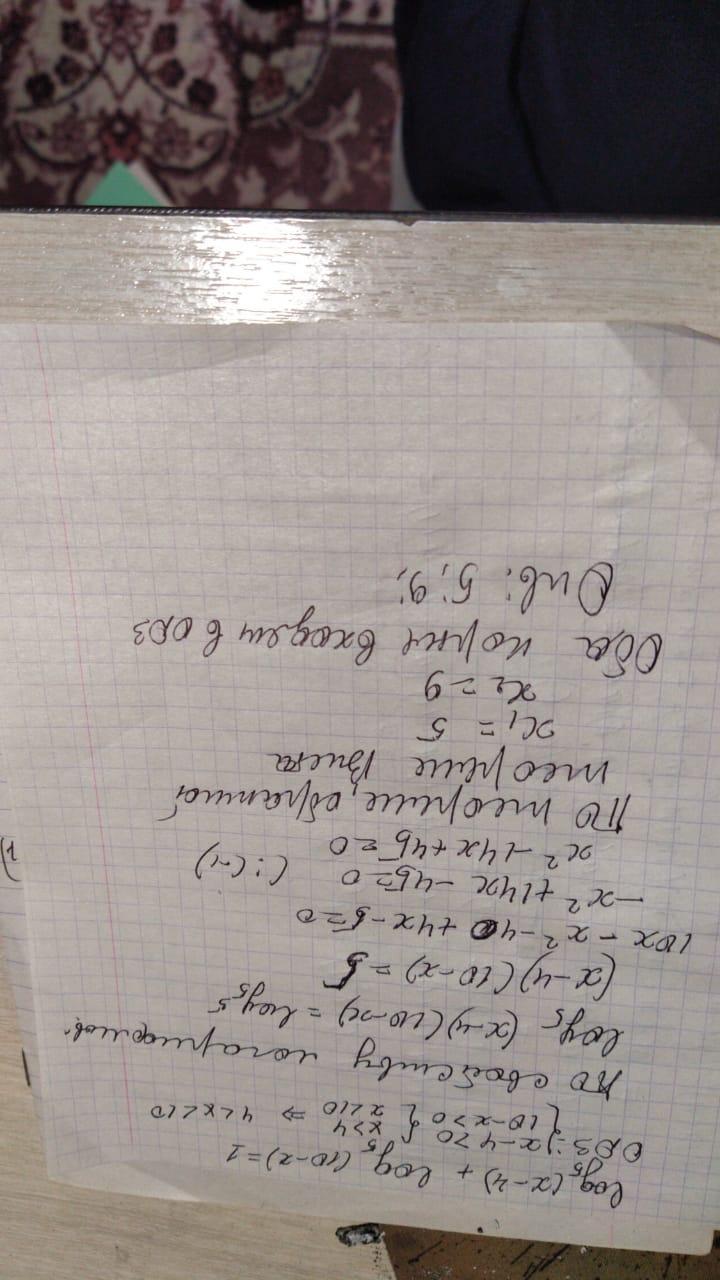 log₅(x-4) + log₅(10-x)=1
ОДЗ: { x-4>0 { x>4
{ 10-x>0 { x<10 ⇒ 4<x<10
по свойству логарифмов:
log₅ (x-4)(10-x) = log₅5
(x-4)(10-x) = 5
10x - x² - 40 + 4x - 5 = 0
-x² + 14x - 45 = 0 (: (-1)
x² - 14x + 45 = 0
По теореме, обратной
теореме Виета
x₁ = 5
x₂ = 9
Оба корня входят в ОДЗ
Отв: 5; 9;